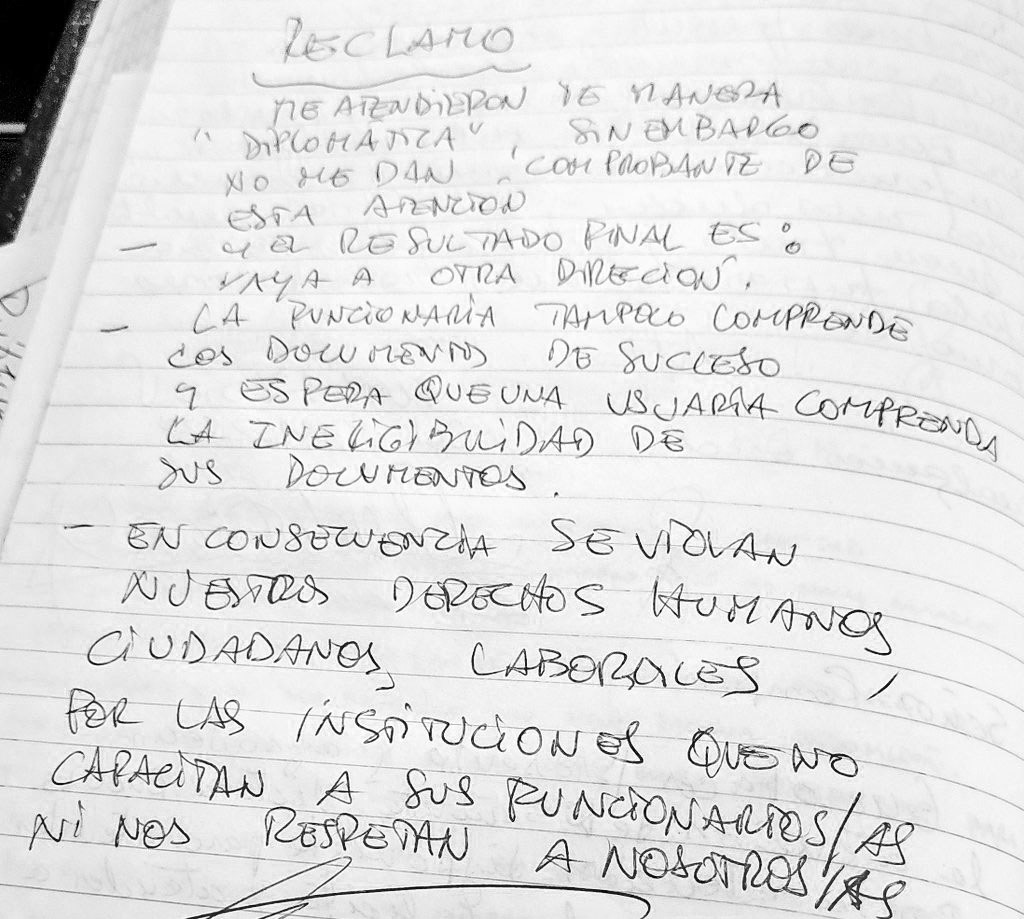 RECLAMO
ME ATENDIERON DE MANERA
"DIPLOMATICA", SIN EMBARGO
NO ME DAN COMPROBANTE DE
ESTA ATENCION
- Y EL RESULTADO FINAL ES:
VAYA A OTRA DIRECION.
- LA FUNCIONARIA TAMPOCO COMPRENDE
LOS DOCUMENTOS DE SUCESO
Y ESPERA QUE UNA USUARIA COMPRENDA
LA INELIGIBILIDAD DE
SUS DOCUMENTOS.
- EN CONSECUENCIA SE VIOLAN
NUESTROS DERECHOS HUMANOS
CIUDADANOS LABORALES,
POR LAS INSTITUCIONES QUE NO
CAPACITAN A SUS FUNCIONARIOS/AS
NI NOS RESPETAN A NOSOTROS/AS